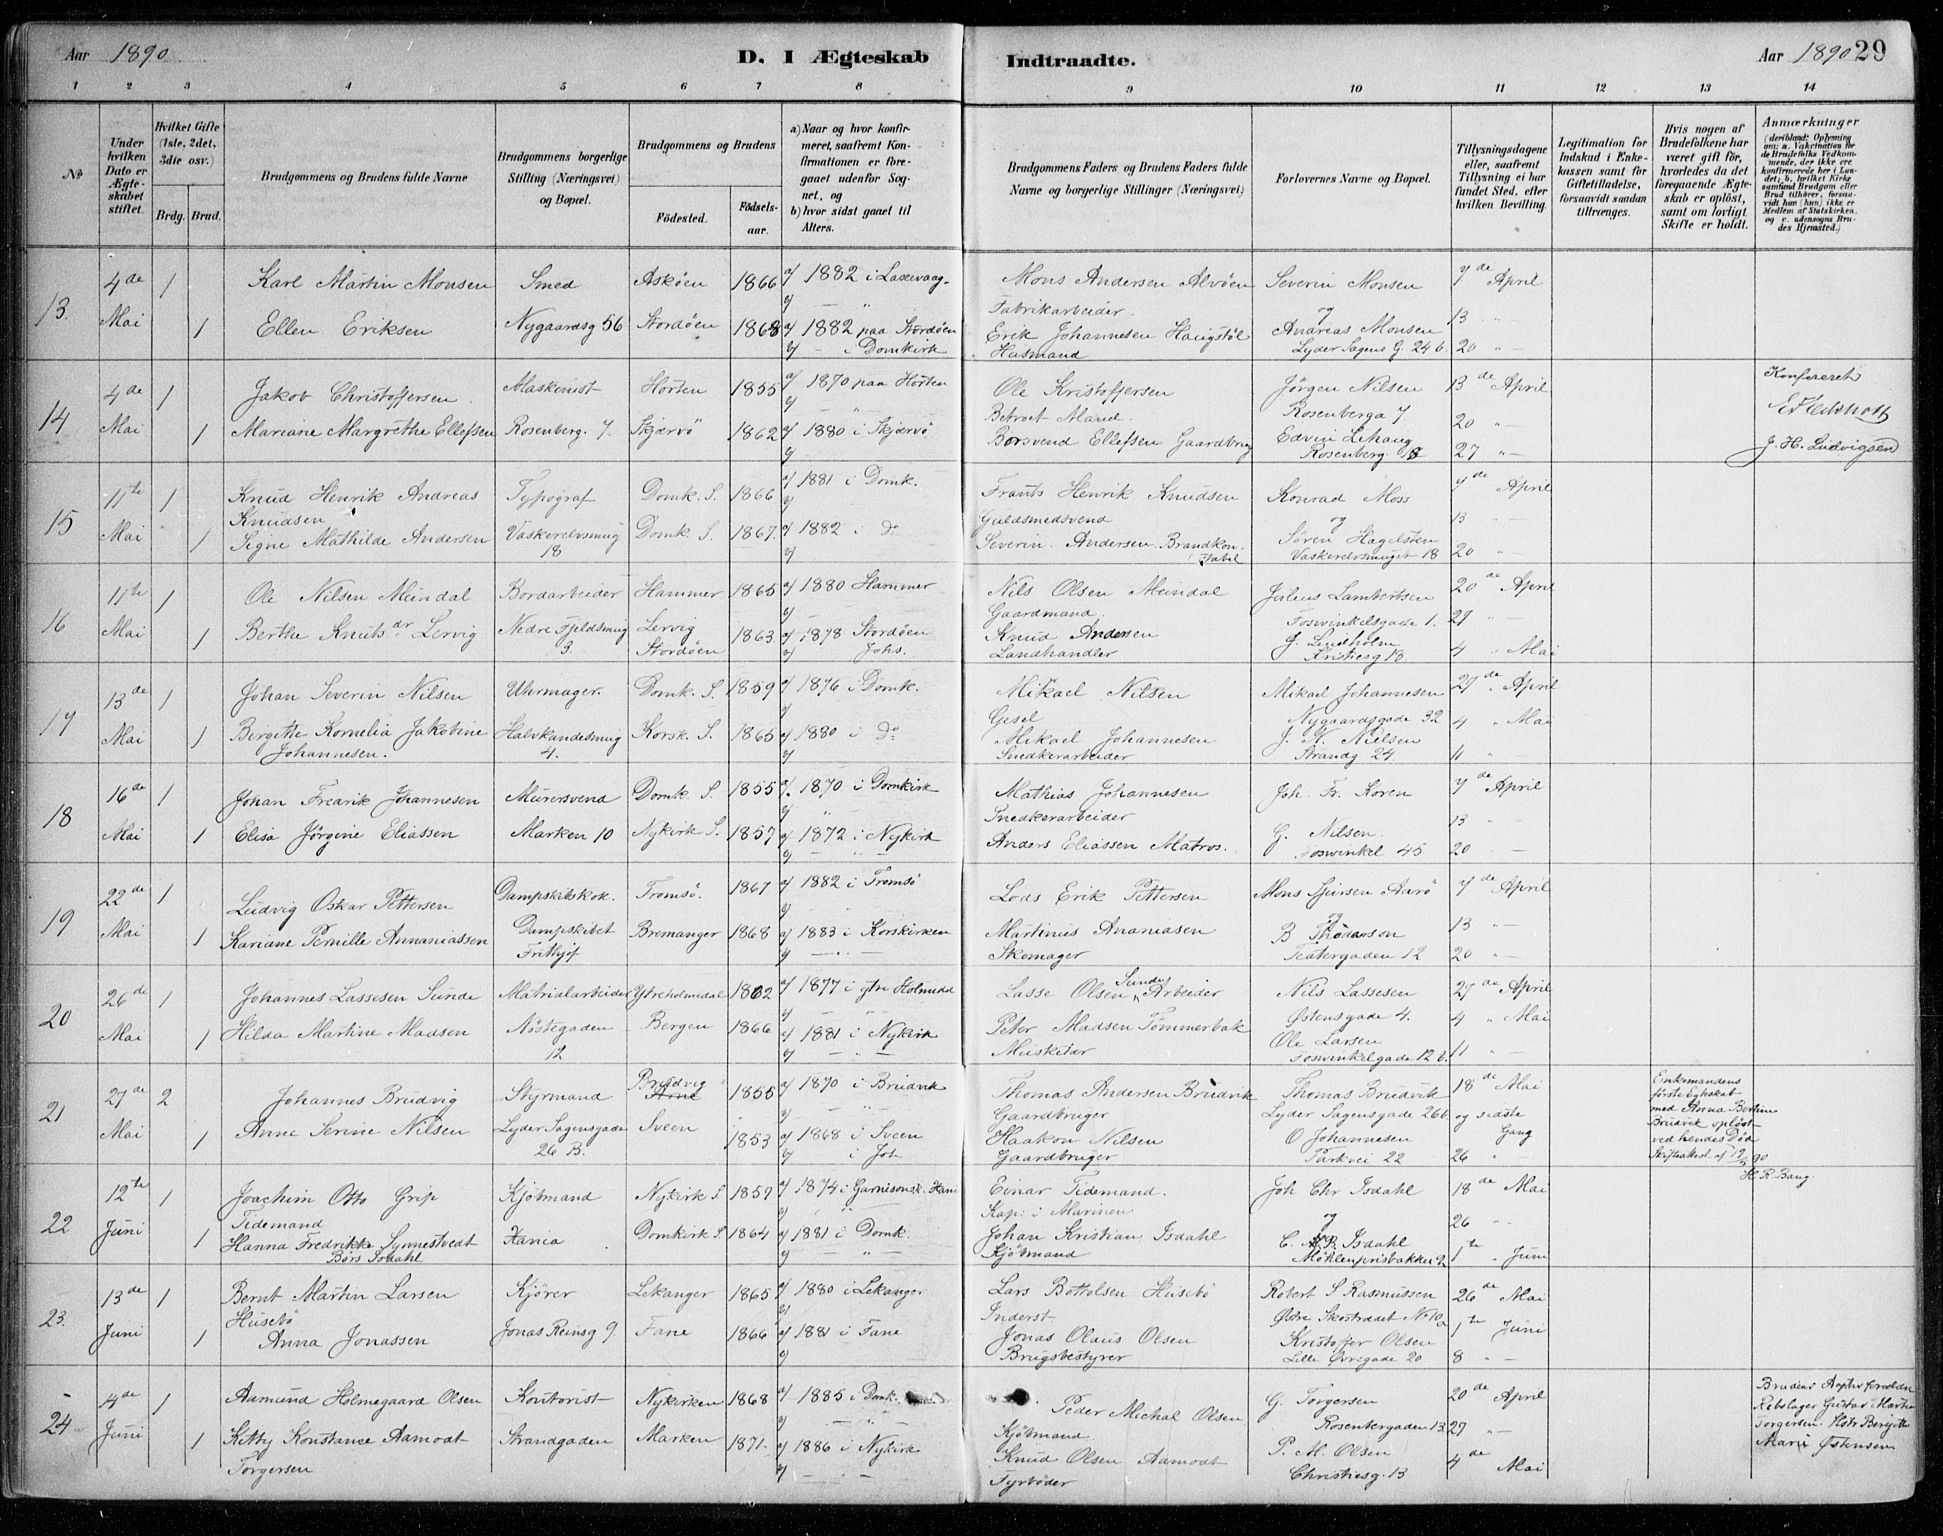 Aar 1890
D. I Ægteskab
Indtraadte.
Aar 1890 29
1 2 3 4 5 6 7 8 9 10 11 12 13 14
No
Under hvilken Dato er Ægteskabet stiftet.
Hvilket Gifte (1ste, 2det, 3die osv.)
Brdg. Brud.
Brudgommens og Brudens fulde Navne
Brudgommens borgerlige Stilling (Næringsvei) og Bopæl.
Brudgommens og Brudens
Fødested.
Fødselsaar.
a) Naar og hvor konfirmeret, saafremt Konfirmationen er foregaaet udenfor Sognet, og
b) hvor sidst gaaet til Alters.
Brudgommens Faders og Brudens Faders fulde Navne og borgerlige Stillinger (Næringsvei)
Forlovernes Navne og Bopæl.
Tillysningsdagene eller, saafremt Tillysning ei har fundet Sted, efter hvilken Bevilling.
Legitimation for Indskud i Enkekassen samt for Giftetilladelse, forsaavidt saadan tiltrænges.
Hvis nogen af Brudefolkene har været gift før, hvorledes da det foregaaende Ægteskab er opløst, samt om lovligt Skifte er holdt.
Anmærkninger
(deriblandt: Oplysning om: a. Vakcination for de Brudefolks Vedkommende, der ikke ere konfirmerede her i Landet; b. hvilket Kirkesamfund Brudgom eller Brud tilhører, forsaavidt han (hun) ikke er Medlem af Statskirken, og c. udensogns Brudes Hjemsted.)
13. 4de 1 Karl Martin Monsen Smed Askøen 1866 a) 1882 i Laxevaag. Mons Andersen Alvøen Severin Monsen 7de April
Fabrikarbeider og 13 " —
Mai 1 Ellen Eriksen Nygaardsg 56 Stordøen 1868 a) 1882 paa Stordøen Erik Johannesen Haugstøl Andreas Monsen
b) — i Domkirk Husmand Lyder Sagens G. 24 b. 20 " —
14 4de 1 Jakob Christoffersen Maskinist Horten 1855 a) 1870 paa Horten Ole Kristoffersen Jørgen Nilsen 13de April Konfereret
Mand. Rosenberga 7 20 " —
Mai 1 Mariane Margrethe Ellefsen Rosenberg. 7. Skjærvø 1862 a) 1880 i Skjærvø Ellefsen Gaardbrug Edvin Lehaug
Rosenberg. 18 27 " — J. H. Ludvigsen
15 11te 1 Knud Henrik Andreas Knudsen Typograf Domk. S. 1866 a) 1881 i Domk. Frants Henrik Knudsen Konrad Moss 7de April
Guldsmedsvend og 13 " —
Mai 1 Signe Mathilde Andersen Vaskerelvsmug 18 Domk. S. 1867. a) 1882 i Do Severin Andersen Brandkonstabel Søren Hagelsten
Vaskerelvsmuget 18 20 " —
16 11te 1 Ole Nilsen Meindal Bordarbeider Hammer 1865 a) 1880 Hammer Nils Olsen Meindal Julius Lambertsen 20de April
Gaardmand. Foswinkelsgade 1. 27 " —
Mai 1 Berthe Knutsdr Lervig Nedre Fjeldsmug 3. Lervig Stordøen 1863 a) 1878 Stordøen Knud Andersen J. Lindholm
b) Johs. Landhandler Kristiesg 13. 4 " Mai
17 13de 1 Johan Severin Nilsen Uhrmager. Domk. S. 1859 a) 1876 i Domk. Mikael Nilsen Mikael Johannesen 27de April
Nygaardsgade 32 4 " Mai
Mai 1 Birgithe Kornelia Jakobine Johannesen. Halvkandesmug 4. Korsk. S. 1865 a) 1880 i Do Mikael Johannesen J. N. Nielsen
Snedkerarbeider Strandg 24 11 " —
18 16de 1 Johan Fredrik Johannesen Murersvend Domk. S. 1855 a) 1870 i Domkirk Mathias Johannesen Joh. Fr. Koren 7de April
Snedkerarbeider 13 " —
Mai 1 Elisa Jørgine Eliassen Marken 10 Nykirk S. 1857 a) 1872 i Nykirk Anders Eliassen Matros. G. Nilsen.
Foswinkel 45 20 " —
19 22de 1 Ludvig Oskar Pettersen Dampskibskok. Tromsø. 1867 a) 1882 i Tromsø Lods Erik Pettersen Mons Sjursen Aarø 7de April
og 13 " —
Mai 1 Kariane Pernille Annaniassen Dampskibet Frithjof Bremanger 1868 a) 1883 i Korskirken Martinus Ananiasen B
Skomager Teatergaden 12 20 " —
20 26de 1 Johannes Lassesen Sunde Matrialarbeider Ytreholmedal 1862 a) 1877 i ytre Holmedal Lasse Olsen Sunde, Arbeider Nils Lassesen 27de April
Østensgade 4. 4 " Mai
Mai 1 Hilda Martine Madsen Nøstegaden 12 Bergen 1866 a) 1881 i Nykirk Peter Madsen Tømmerbak Ole Larsen
Musketer Foswinkelgade 12 b. 11 " —
21 27de 2 Johannes Brudvig Styrmand Brudvig Arne 1855 a) 1870 i Brudvik Thomas Andersen Brudvik Thomas Brudvik 18de Mai Enkemandens
Gaardbruger Lyder Sagensgade 26b og sidste Gang første Egteskab
med Anna Bertine
Mai 1 Anne Serine Nilsen Lyder Sagensgade 26 B. Sveen 1853 a) 1868 i Sveen Haakon Nilsen O Johannesen Brudvik opløst
b) i Joh Gaardbruger Parkvei 22 26 " ved hendes Død
Skifteattest af 19/5 90
H. R. Bang.
22 12te 1 Joachim Otto Grip Tidemand Kjøbmand Nykirk S 1857 a) 1874 i Garnisonsk. Einar Tidemand. Joh Chr Isdahl 18de Mai
Kap: i Marinen og 26 " —
Juni 1 Hanna Fredrikke Synnestvedt Børs Isdahl Domkirk S. 1864 a) 1881 i Domk. Johan Kristian Isdahl C. Isdahl
Kjøbmand Møhlenprisbakken 2 1te " Juni
23. 13de 1 Bernt Martin Larsen Husebø Kjører Lekanger 1865 a) 1880 i Lekanger Lars Bottolsen Husebø Robert S Rasmussen 26de Mai
Inderst. Østre Skostrædet No 10a 1te " Juni
Juni 1 Anna Jonassen Jonas Reinsg 9. Fane 1866 a) 1881 i Fane Jonas Olaus Olsen Kristoffer Olsen
Brugsbestyrer Lille Øvregade 20 8 " —
24 14de 1 Aamund Holmegaard Olsen Kontorist Nykirken 1868 a) 1885 i Domk. Peder Michal Olsen G. Torgersen 20de April Brudens Aspleforældre
Kjøbmand. Rosenbergaden 13. 27 " — Rebslager Gustav Martin
Juni 1 Kitty Konstance Aamodt Torgersen Strandgaden Marken 1871. a) 1886 i Nykirk Knud Olsen Aamodt P. M. Olsen Torgersen Hstr Bergitte
Fyrbøder Christiesg. 13 4de Mai Marie Østensen